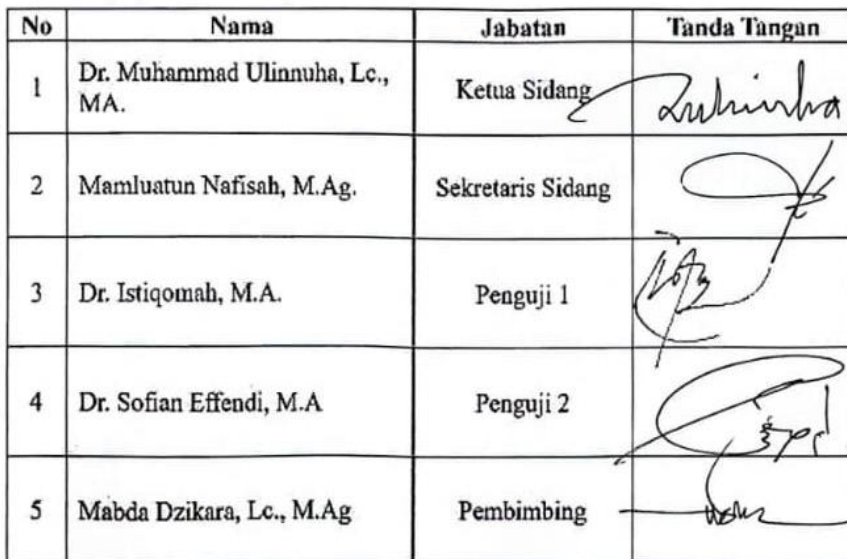 No Nama Jabatan Tanda Tangan
1 Dr. Muhammad Ulinnuha, Lc., Ketua Sidang
MA.
2 Mamluatun Nafisah, M.Ag. Sekretaris Sidang
3 Dr. Istiqomah, M.A. Penguji 1
4 Dr. Sofian Effendi, M.A Penguji 2
5 Mabda Dzikara, Lc., M.Ag Pembimbing